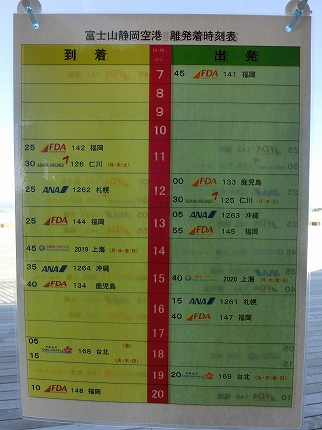 富士山静岡空港 離発着時刻表
到着 10/25から 出発
7 45 FDA 141 福岡
8
9
10
25 FDA 142 福岡 11
30 ASIANA AIRLINES 126 仁川 (月・木・土)
12 00 FDA 133 鹿児島
25 ANA 1262 札幌 30 ASIANA AIRLINES 125 仁川
25 FDA 144 福岡 13 05 ANA 1263 沖縄
55 FDA 145 福岡
45 2019 上海 (月・水・金・日) 14
35 ANA 1264 沖縄 15
40 FDA 134 鹿児島 40 2020 上海 (月・水・金・日)
16 15 ANA 1261 札幌
40 FDA 147 福岡
17
05
15 168 台北 (火・木・日) 18
19 20 169 台北 (火・木・日)
10 FDA 148 福岡 20